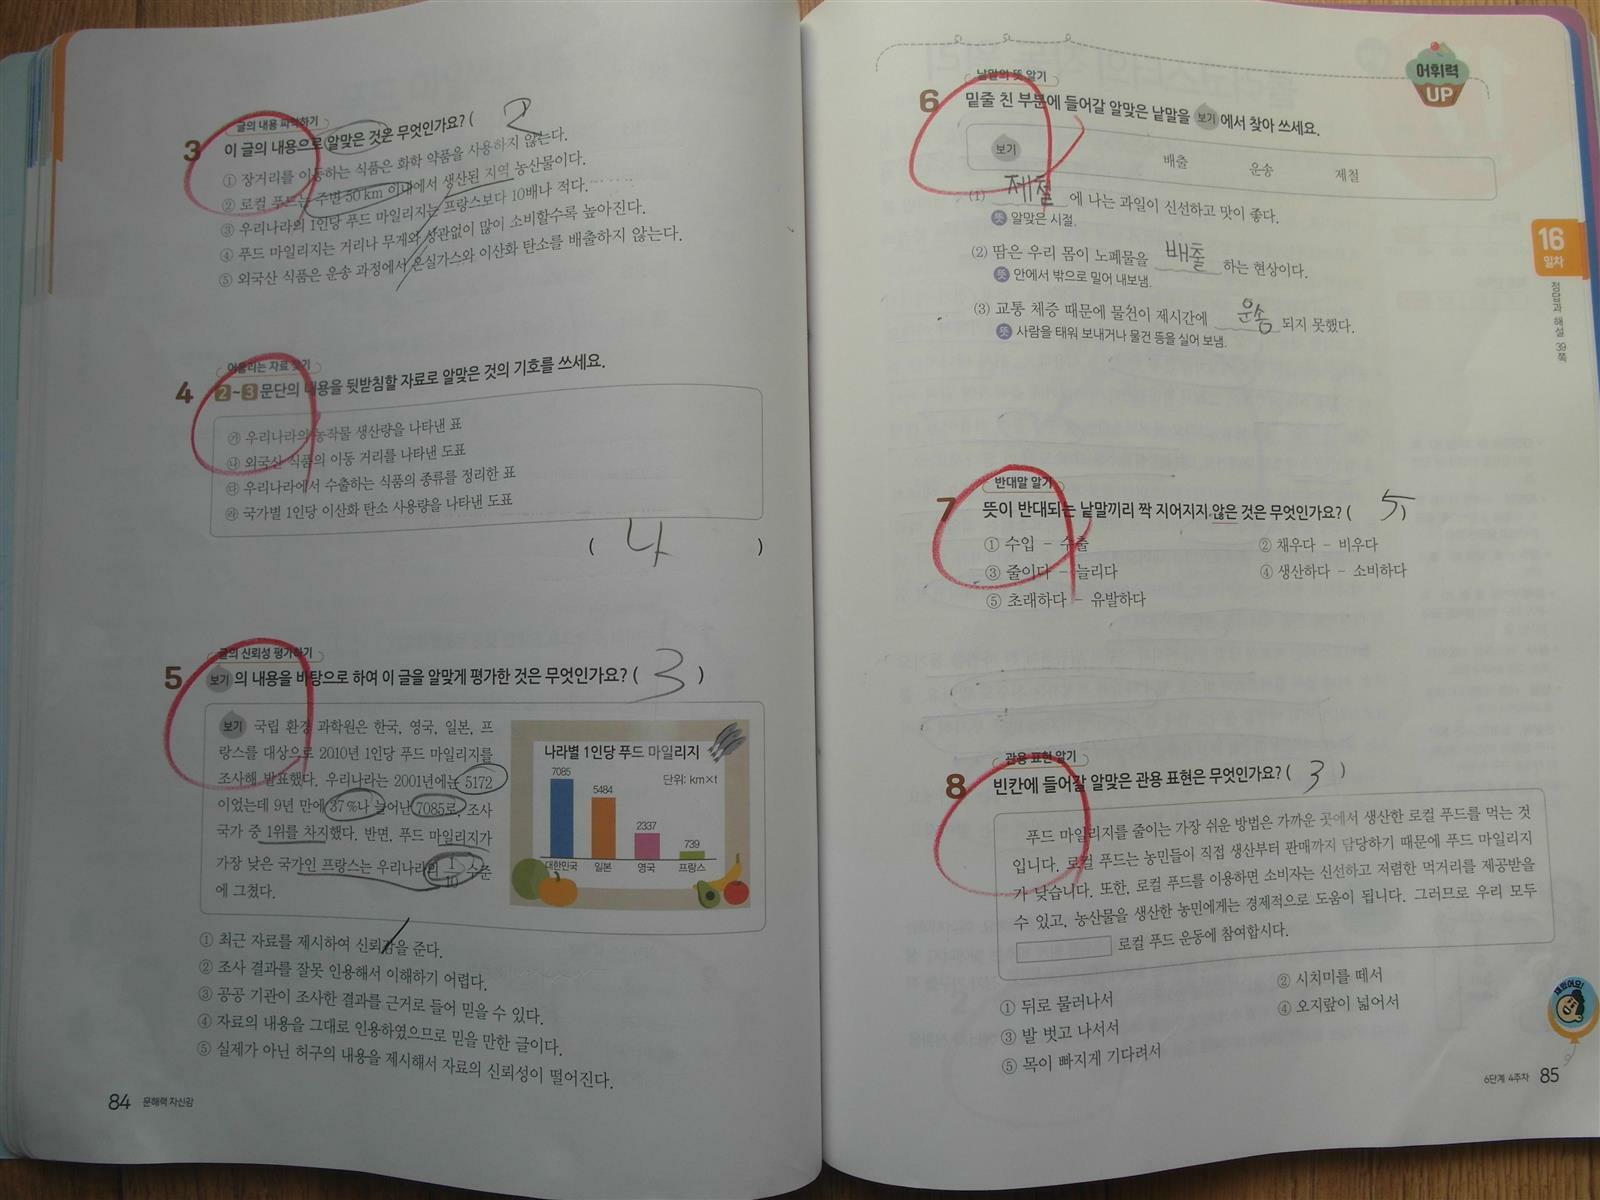 글의 내용 파악하기
3 이 글의 내용으로 알맞은 것은 무엇인가요? ( 2
① 장거리를 이동하는 식품은 화학 약품을 사용하지 않는다.
② 로컬 푸드는 주변 50 km 이내에서 생산된 지역 농산물이다.
③ 우리나라의 1인당 푸드 마일리지는 프랑스보다 10배나 적다.
④ 푸드 마일리지는 거리나 무게와 상관없이 많이 소비할수록 높아진다.
⑤ 외국산 식품은 운송 과정에서 온실가스와 이산화 탄소를 배출하지 않는다.
어울리는 자료 찾기
4 2~3 문단의 내용을 뒷받침할 자료로 알맞은 것의 기호를 쓰세요.
㉮ 우리나라의 농작물 생산량을 나타낸 표
㉯ 외국산 식품의 이동 거리를 나타낸 도표
㉰ 우리나라에서 수출하는 식품의 종류를 정리한 표
㉱ 국가별 1인당 이산화 탄소 사용량을 나타낸 도표
( 나 )
글의 신뢰성 평가하기
5 보기 의 내용을 바탕으로 하여 이 글을 알맞게 평가한 것은 무엇인가요? ( 3 )
보기 국립 환경 과학원은 한국, 영국, 일본, 프
랑스를 대상으로 2010년 1인당 푸드 마일리지를
조사해 발표했다. 우리나라는 2001년에는 5172
이었는데 9년 만에 37 %나 늘어난 7085로, 조사
국가 중 1위를 차지했다. 반면, 푸드 마일리지가
가장 낮은 국가인 프랑스는 우리나라의 1/10 수준
에 그쳤다.
나라별 1인당 푸드 마일리지
단위: km×t
7085
5484
2337
739
대한민국 일본 영국 프랑스
① 최근 자료를 제시하여 신뢰감을 준다.
② 조사 결과를 잘못 인용해서 이해하기 어렵다.
③ 공공 기관이 조사한 결과를 근거로 들어 믿을 수 있다.
④ 자료의 내용을 그대로 인용하였으므로 믿을 만한 글이다.
⑤ 실제가 아닌 허구의 내용을 제시해서 자료의 신뢰성이 떨어진다.
84 문해력 자신감
어휘력
UP
낱말의 뜻 알기
6 밑줄 친 부분에 들어갈 알맞은 낱말을 보기 에서 찾아 쓰세요.
보기 배출 운송 제철
(1) 제철 에 나는 과일이 신선하고 맛이 좋다.
뜻 알맞은 시절.
(2) 땀은 우리 몸이 노폐물을 배출 하는 현상이다.
뜻 안에서 밖으로 밀어 내보냄.
(3) 교통 체증 때문에 물건이 제시간에 운송 되지 못했다.
뜻 사람을 태워 보내거나 물건 등을 실어 보냄.
16
일차
정답과 해설 39쪽
반대말 알기
7 뜻이 반대되는 낱말끼리 짝 지어지지 않은 것은 무엇인가요? ( 5
① 수입 – 수출
② 채우다 – 비우다
③ 줄이다 – 늘리다
④ 생산하다 – 소비하다
⑤ 초래하다 – 유발하다
관용 표현 알기
8 빈칸에 들어갈 알맞은 관용 표현은 무엇인가요? ( 3 )
푸드 마일리지를 줄이는 가장 쉬운 방법은 가까운 곳에서 생산한 로컬 푸드를 먹는 것
입니다. 로컬 푸드는 농민들이 직접 생산부터 판매까지 담당하기 때문에 푸드 마일리지
가 낮습니다. 또한, 로컬 푸드를 이용하면 소비자는 신선하고 저렴한 먹거리를 제공받을
수 있고, 농산물을 생산한 농민에게는 경제적으로 도움이 됩니다. 그러므로 우리 모두
로컬 푸드 운동에 참여합시다.
① 뒤로 물러나서
② 시치미를 떼서
③ 발 벗고 나서서
④ 오지랖이 넓어서
⑤ 목이 빠지게 기다려서
재밌어요!
6단계 4주차 85